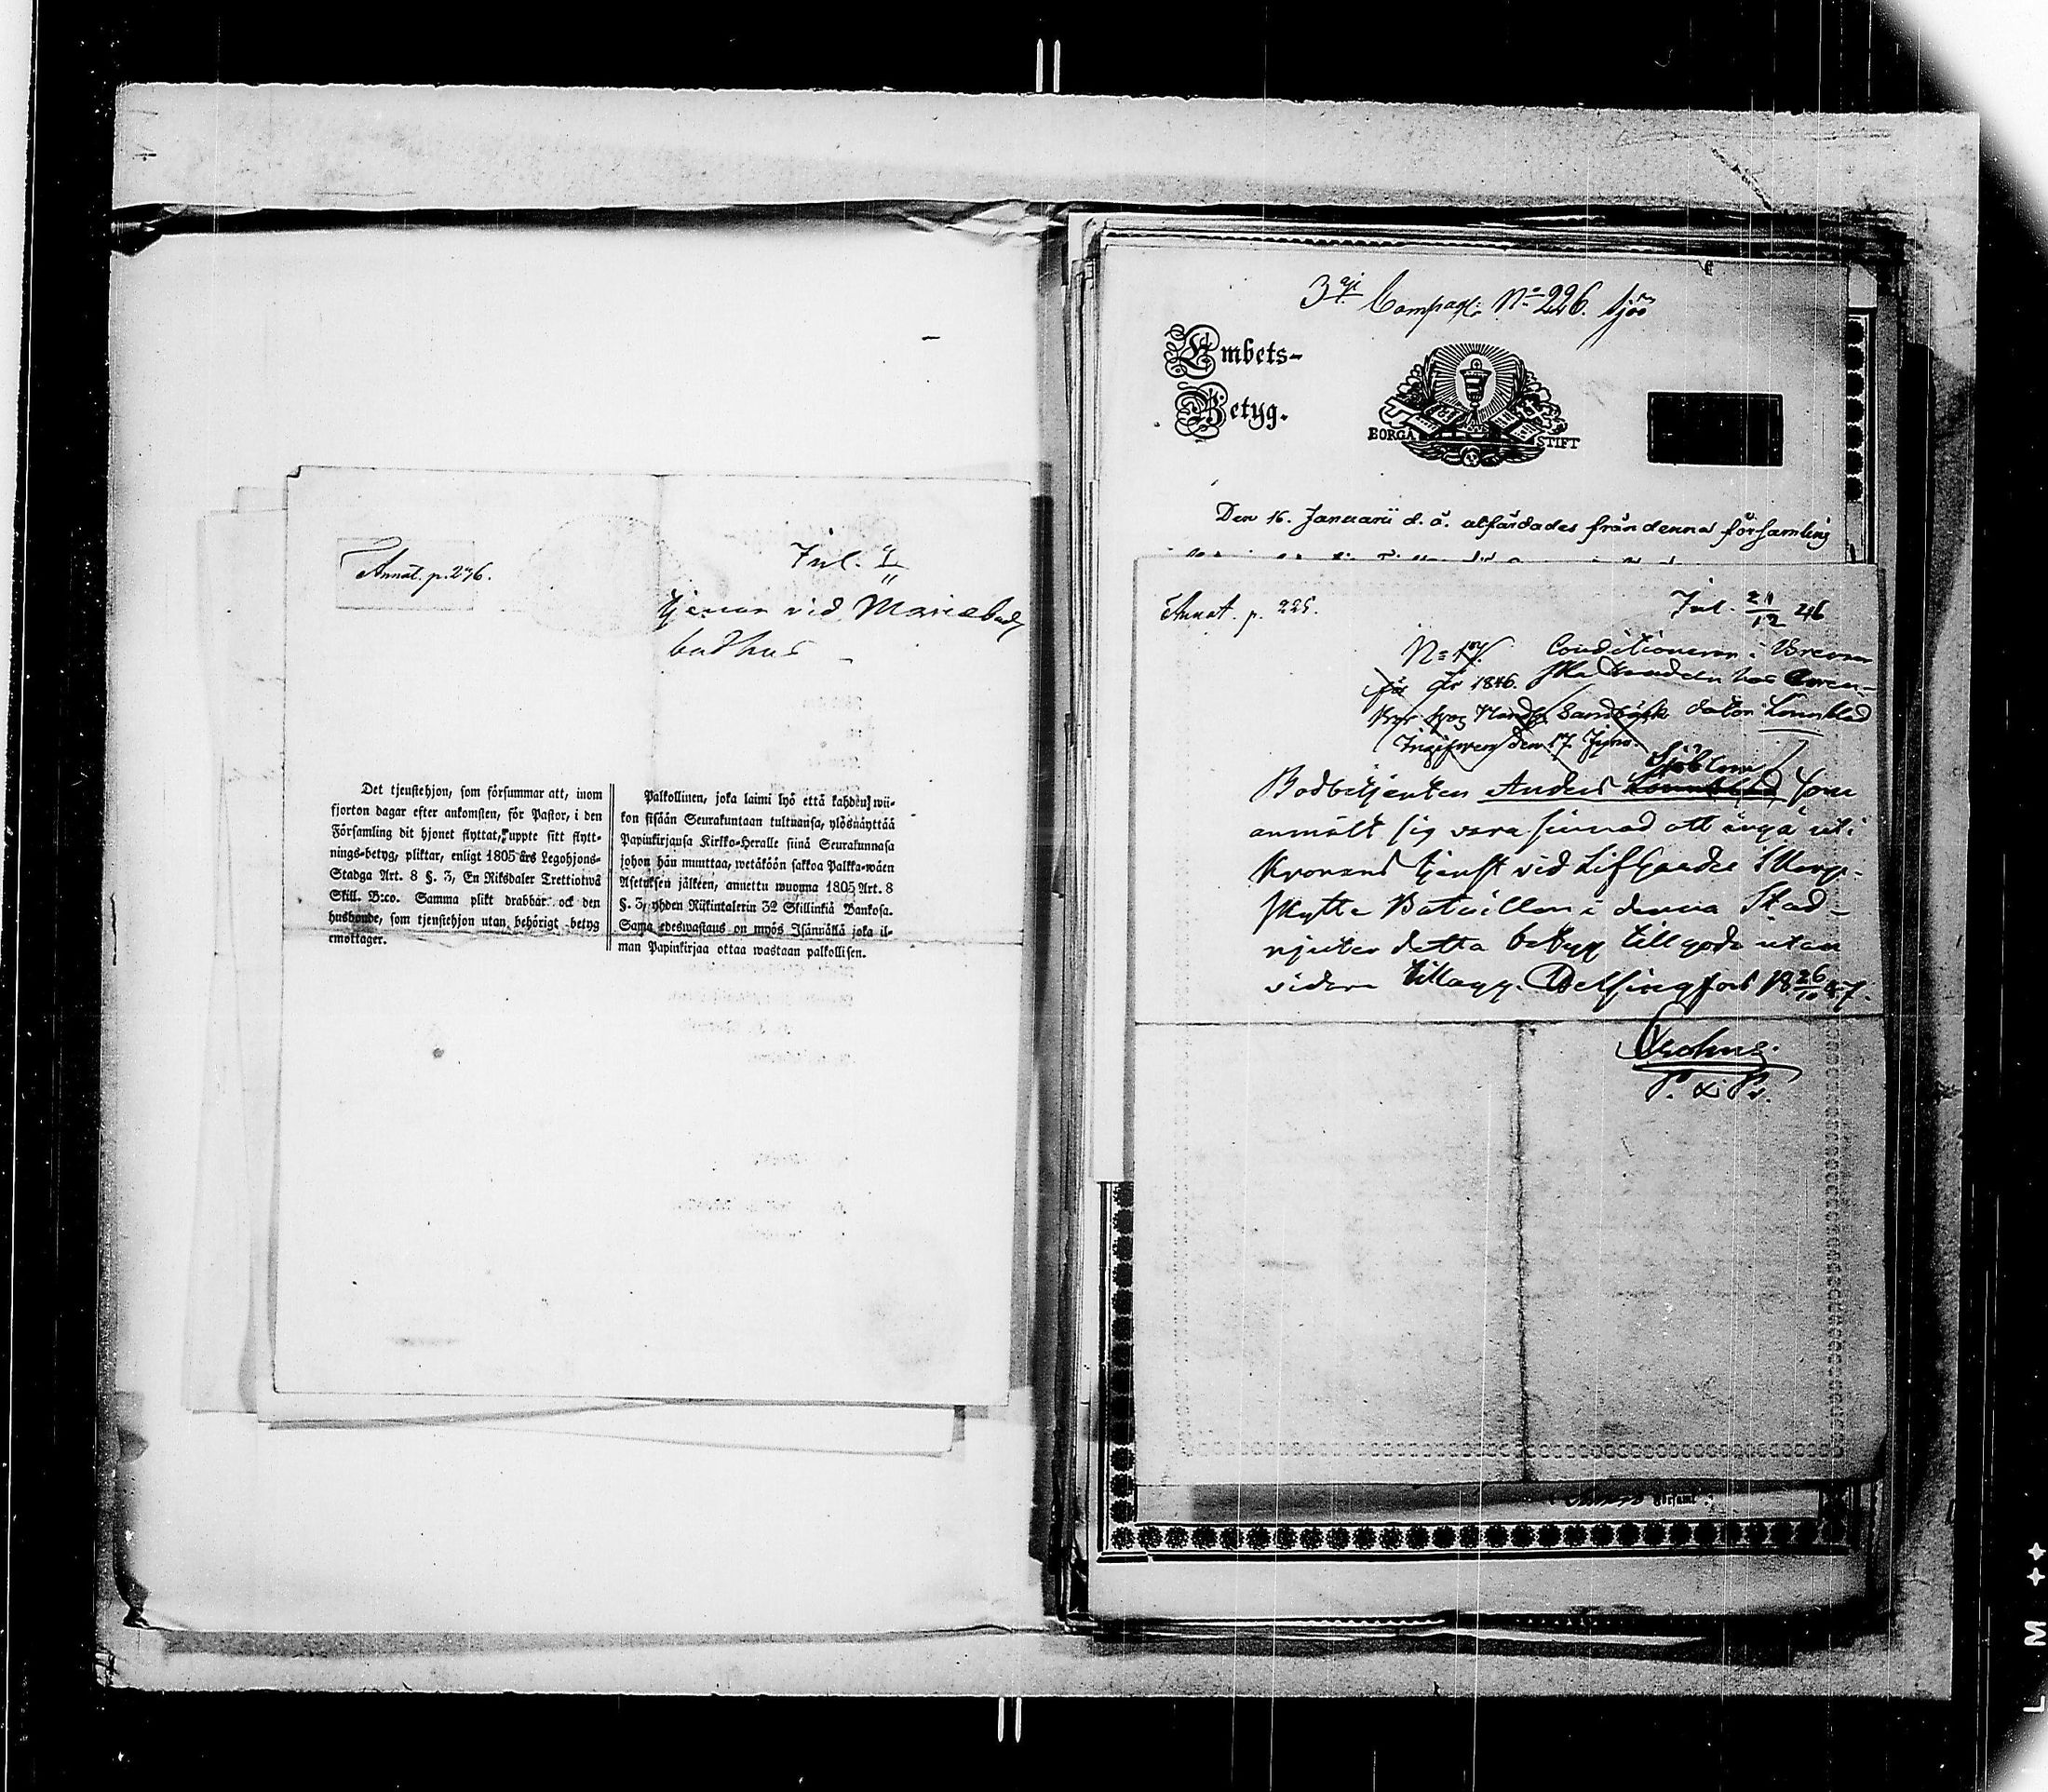 Annot. p. 246.
Inl.
tjenar vid Mariebads
badhus
Det tjenstehjon, som försummar att, inom
fjorton dagar efter ankomsten, för Pastor, i den
Församling dit hjonet flyttat, uppte sitt flytt-
nings-betyg, pliktar, enligt 1805 års Legohjons-
Stadga Art. 8 §. 3, En Riksdaler Trettiotwå
Skill. B:co. Samma plikt drabbar ock den
husbonde, som tjenstehjon utan behörigt betyg
emottager.
Palkollinen, joka laimi lyö että kahden wii-
kon sisään Seurakuntaan tultuansa, ylösnäyttää
Papinkirjansa Kirkko-Heralle siinä Seurakunnasa
johon hän muuttaa, wetäköön sakkoa Palkka-wäen
Asetuksen jälkeen, annettu wuonna 1805 Art. 8
§. 3, yhden Riikintalerin 32 Skillinkiä Bankosa.
Sama edeswastaus on myös Isännällä joka il-
man Papinkirjaa ottaa wastaan palkollisen.
3dje Compagt: No 226. Sjöö
Embets-
Betyg.
BORGÅ STIFT
Den 16. Januarii d. å. utfärdades från denna församling
Annot. p. 225.
Inl. 21/12 46
Conditionerar i
för År 1846.
den 17
Sjöblom
Bodbetjenten Anders som
anmält sig vara sinnad att ingå uti
Kronans tjenst vid Lifgardes Skarp-
skytte Bataillon i denna Stad
njuter detta betyg till godo utan
vidare tillägg. Helsingfors 18 26/10 47.
Crohns.
P. &